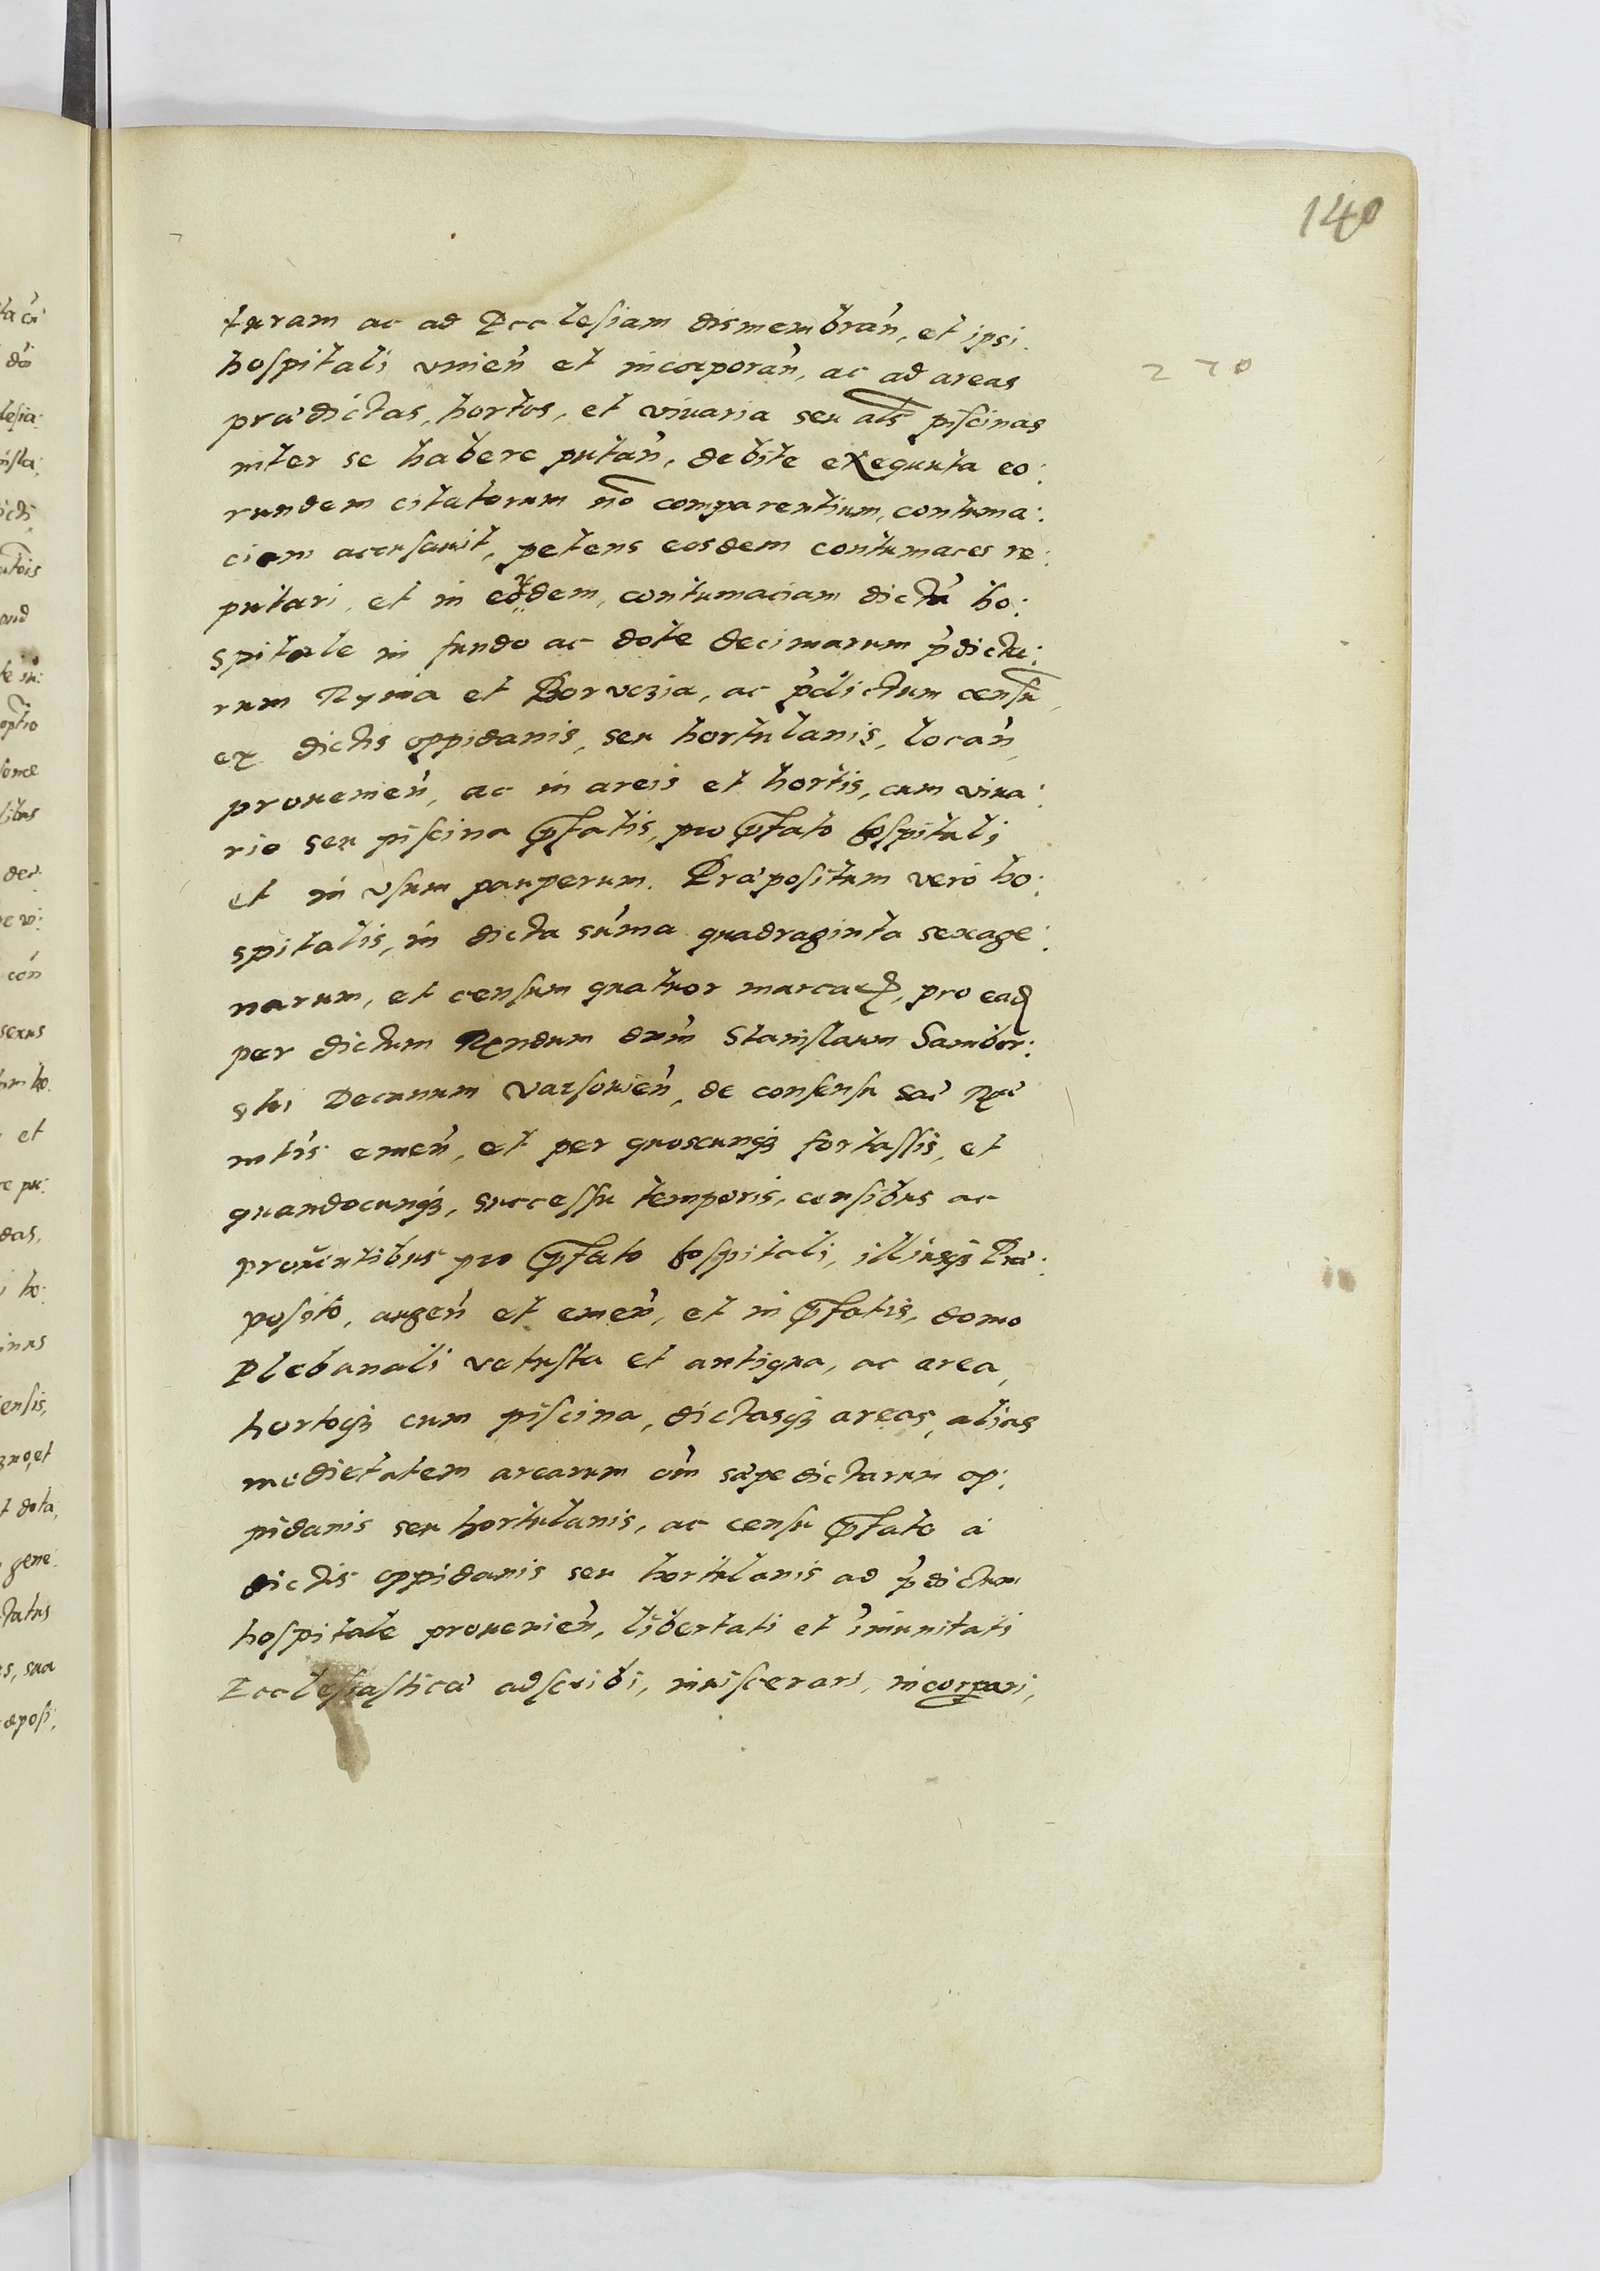 140
turam ac ad Ecclesiam dismembrań, et ipsi
270
hospitali vnień et incorporań, ac ad areas
prædictas, hortos, et viuaria seu als piscinas
inter se habere putań, debite exequuta eo:
rundem citatorum no comparentium, contuma:
ciam accusauit, petens eosdem contumaces re:
putari, et in eordem, contumaciam dictu ho:
spitale in fundo ac dote decimarum pdicta:
rum Nynia et Borvezia, ac pdictum censu
ex dictis oppidanis, seu hortulanis, locań,
prouenień, ac in areis et hortis, cum viua:
rio seu piscina pfatis, pro pfato hospitali
et in vsum pauperum. Præpositum vero ho:
spitalis, in dicta suma quadraginta sexage:
narum, et censum quatuor marcar, pro ead
per dictum Rndum dnm Stanislaum Sambor:
ski Decanum Varsouień, de consensu
emeń, et per quoscunq fortassis, et
quandocunq, successu temporis, censibus ac
prouentibus pro pfato hospitali, illiusq Præ:
posito, augeń et emeń, et in pfatis, domo
Plebanali vetusta et antiqua, ac area,
hortoq cum piscina, dictasq areas, alias
medietatem arearum cum sæpe dictarum op:
pidanis seu hortulanis, ac censu pfato a
dictis oppidanis seu hortulanis ad pdictum
hospitale prouenień, libertati et imunitati
Ecclesiasticæ adscribi, inuiscerari, incorpari,